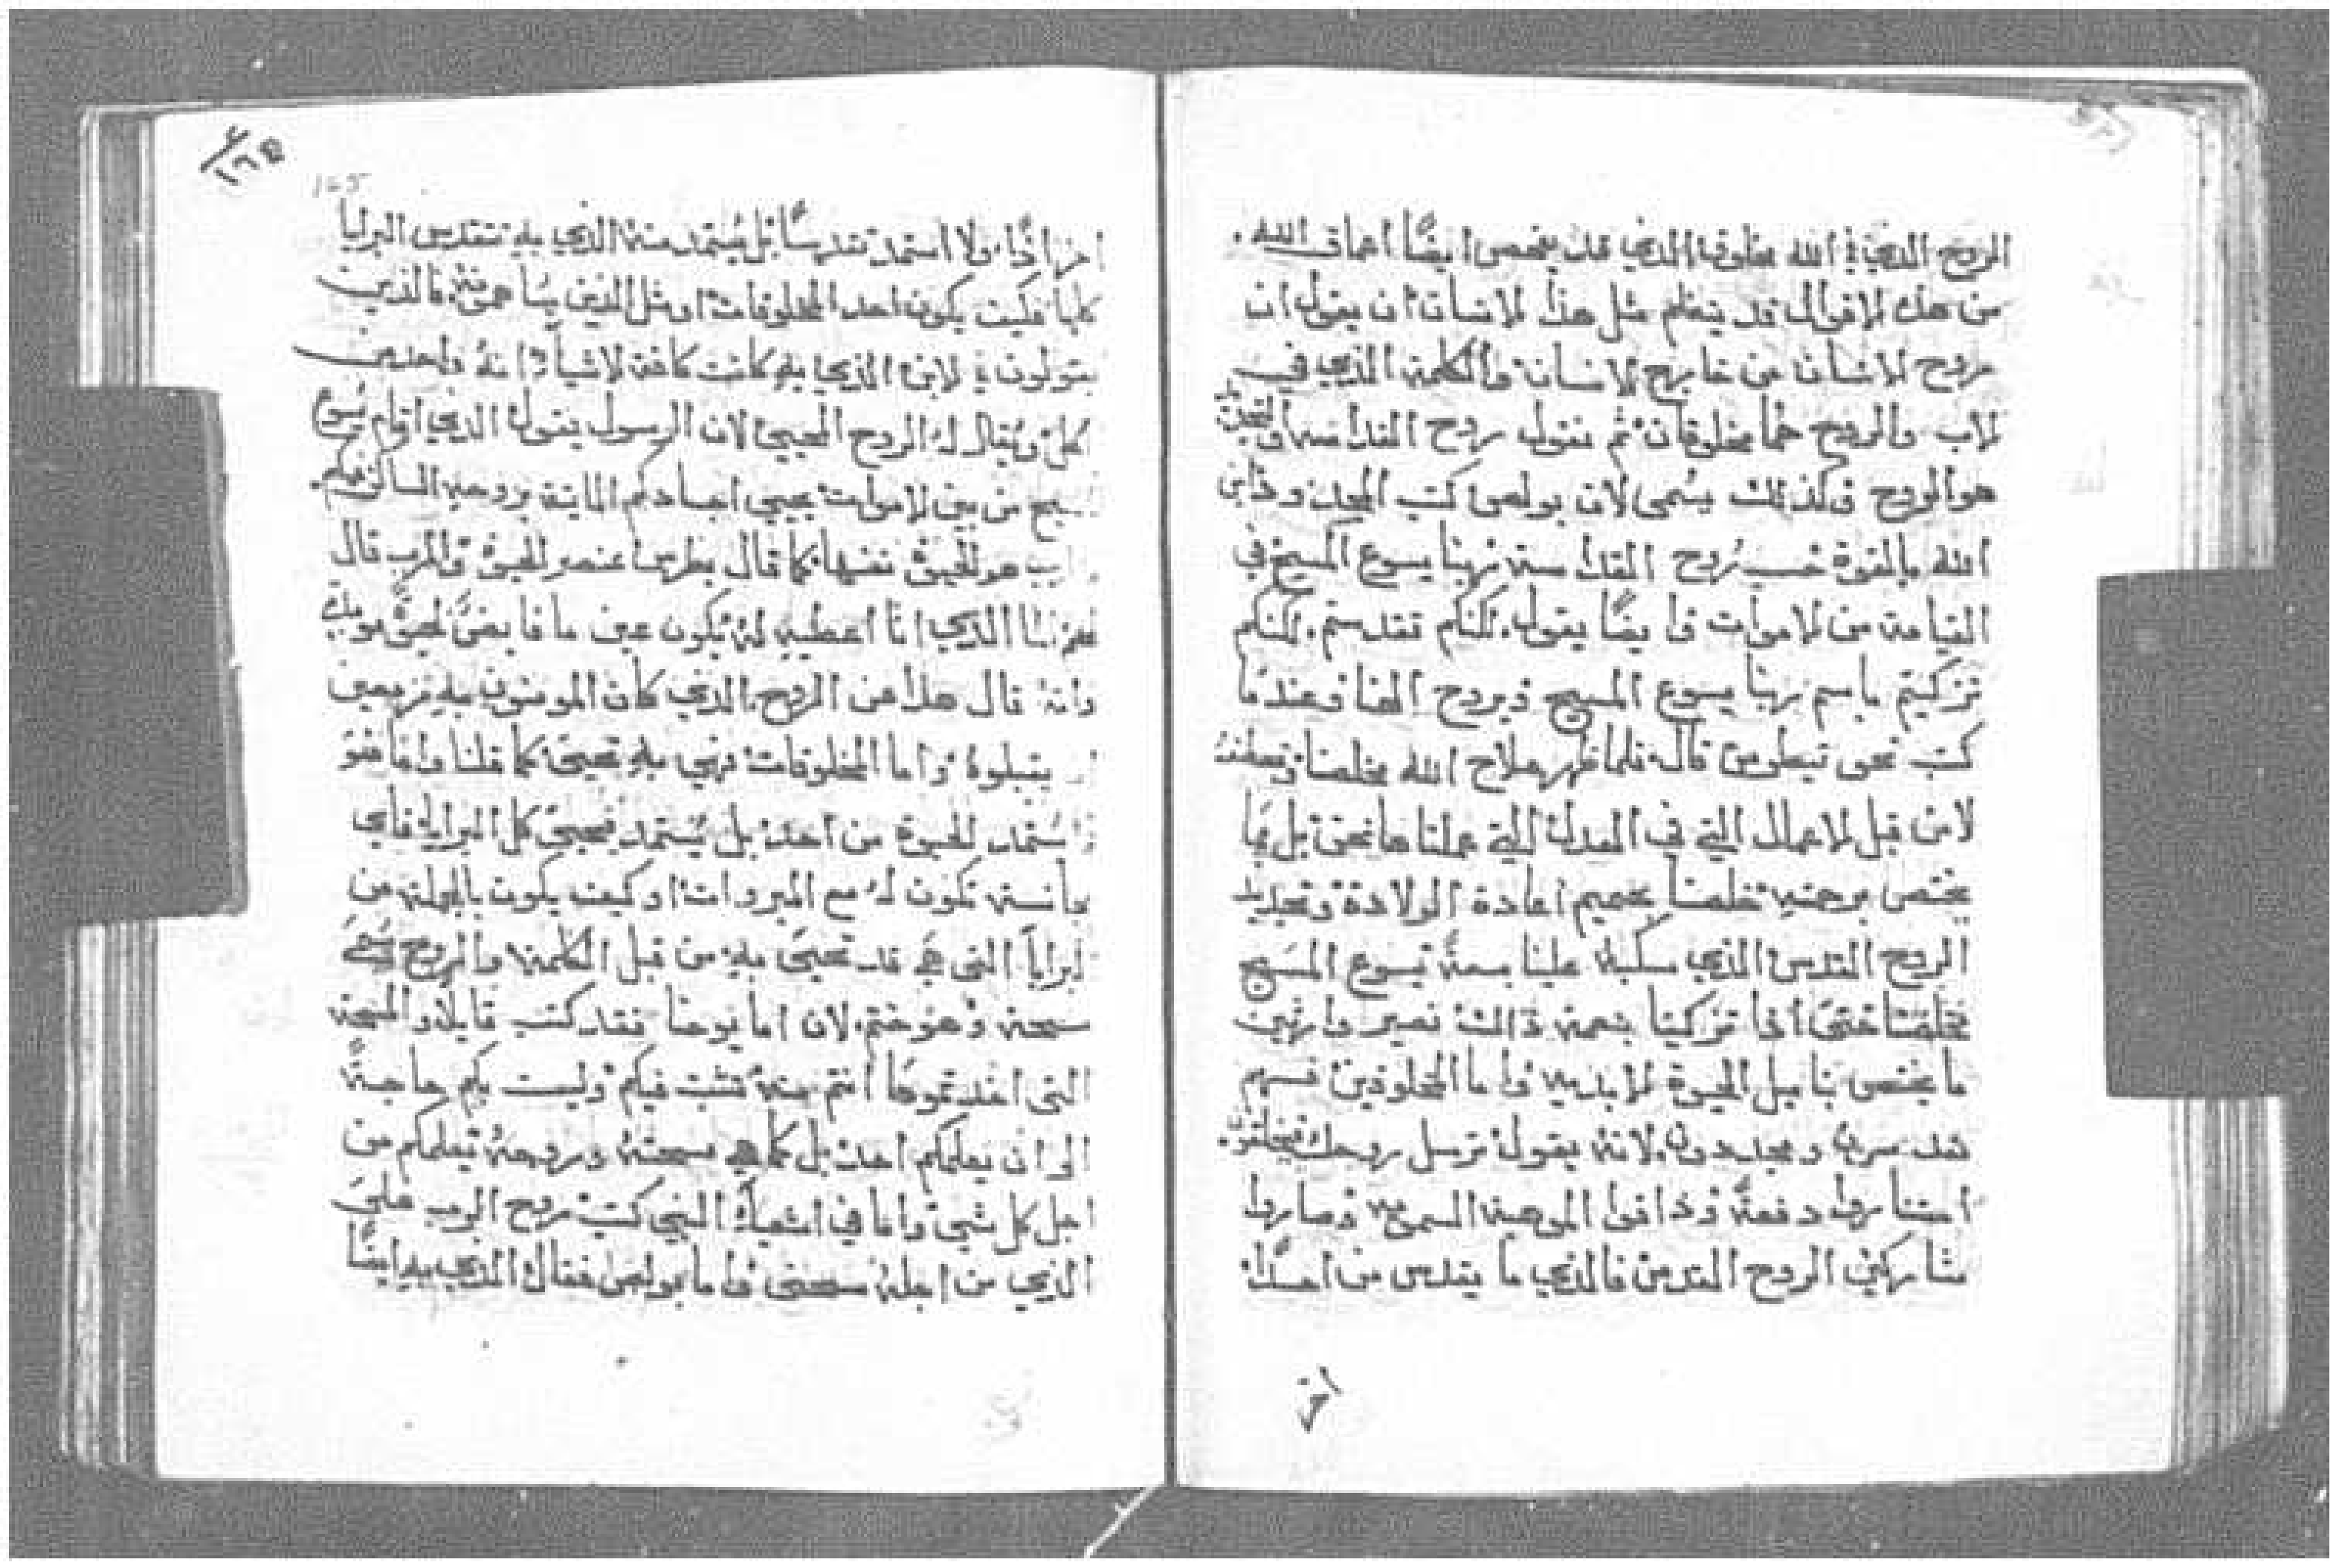 الروح الذي في الله مخلوقا الذي قد يفحص ايضًا اعماق الله.
من هذه الاقوال قد يتعلم مثل هذا الانسان ان يقول ان
روح الانسان من خارج الانسان والكلمة الذي في
الاب والروح هما مخلوقان ثم نقول روح القداسة والتجديد
هو الروح وكذلك يسمى لان بولص كتب المحدد ابن
الله بالقوة حسب روح القداسة ربنا يسوع المسيح في
القيامة من الاموات وايضًا يقول. لكنكم تقدستم. لكنكم
تزكيتم باسم ربنا يسوع المسيح وبروح الهنا وعندما
كتب نحو تيطس قال فلما ظهر صلاح الله مخلصنا وتعطفه
لا من قبل الاعمال التي في العدل التي عملناها نحن بل بما
يختص برحمته خلصنا بحميم اعادة الولادة وتجديد
الروح القدس الذي سكبه علينا بسعة يسوع المسيح
مخلصنا حتى اذا تزكينا بنعمة ذلك نصير وارثين
ما يختص بناميل الحيوة الابدية واما المخلوقين فسهم
يقدسون ويجددون لانه يقول ترسل روحك فيخلقون.
استناروا دفعةً وذاقوا الموهبة السموية وصاروا
مشاركين الروح القدس فالذي ما يتقدس من احد
اخر
١٦٥
165
اخر اذًا ولا استمد تقديسًا بل يُستمد منه الذي به تتقدس البرايا
كلها فكيف يكون احد المخلوقات او مثل الذين يساهمونه. فالذين
يقولون في الابن الذي به كانت كافة الاشيآء انه واحد من
الكل ويقال له الروح المحيي لان الرسول يقول الذي اقام يسوع
المسيح من بين الاموات يحيي اجسادكم المايتة بروحه الساكن فيكم.
الرب هو الحيوة نفسها كما قال بطرس عنصر الحيوة والرب قال
الذي انا اعطيه له يكون عين ما فايض لحيوة
وانه قال هذا عن الروح. الذي كان المومنون به مزمعين
ان يقبلوه واما المخلوقات فهي به تحيى كما قلنا واما هو
يستمد الحيوة من احد بل يُستمد فيحيي كل البرايا فاي
مجانسة تكون له مع المبروات او كيف يكون بالجملة من
البرايا التي هي قد تحيى به من قبل الكلمة والروح يُسمى
مسحة وهو ختم. لان اما يوحنا فقد كتب قايلًا والمسحة
التي اخذتموها انتم منه تثبت فيكم وليست بكم حاجةً
الى ان يعلمكم احد بل كما هي مسحته وروحه تعلمكم من
اجل كل شي واما في اشعيآء النبي كتب روح الرب علي
الذي من اجله مسحني واما بولص فقال الذي به ايضًا